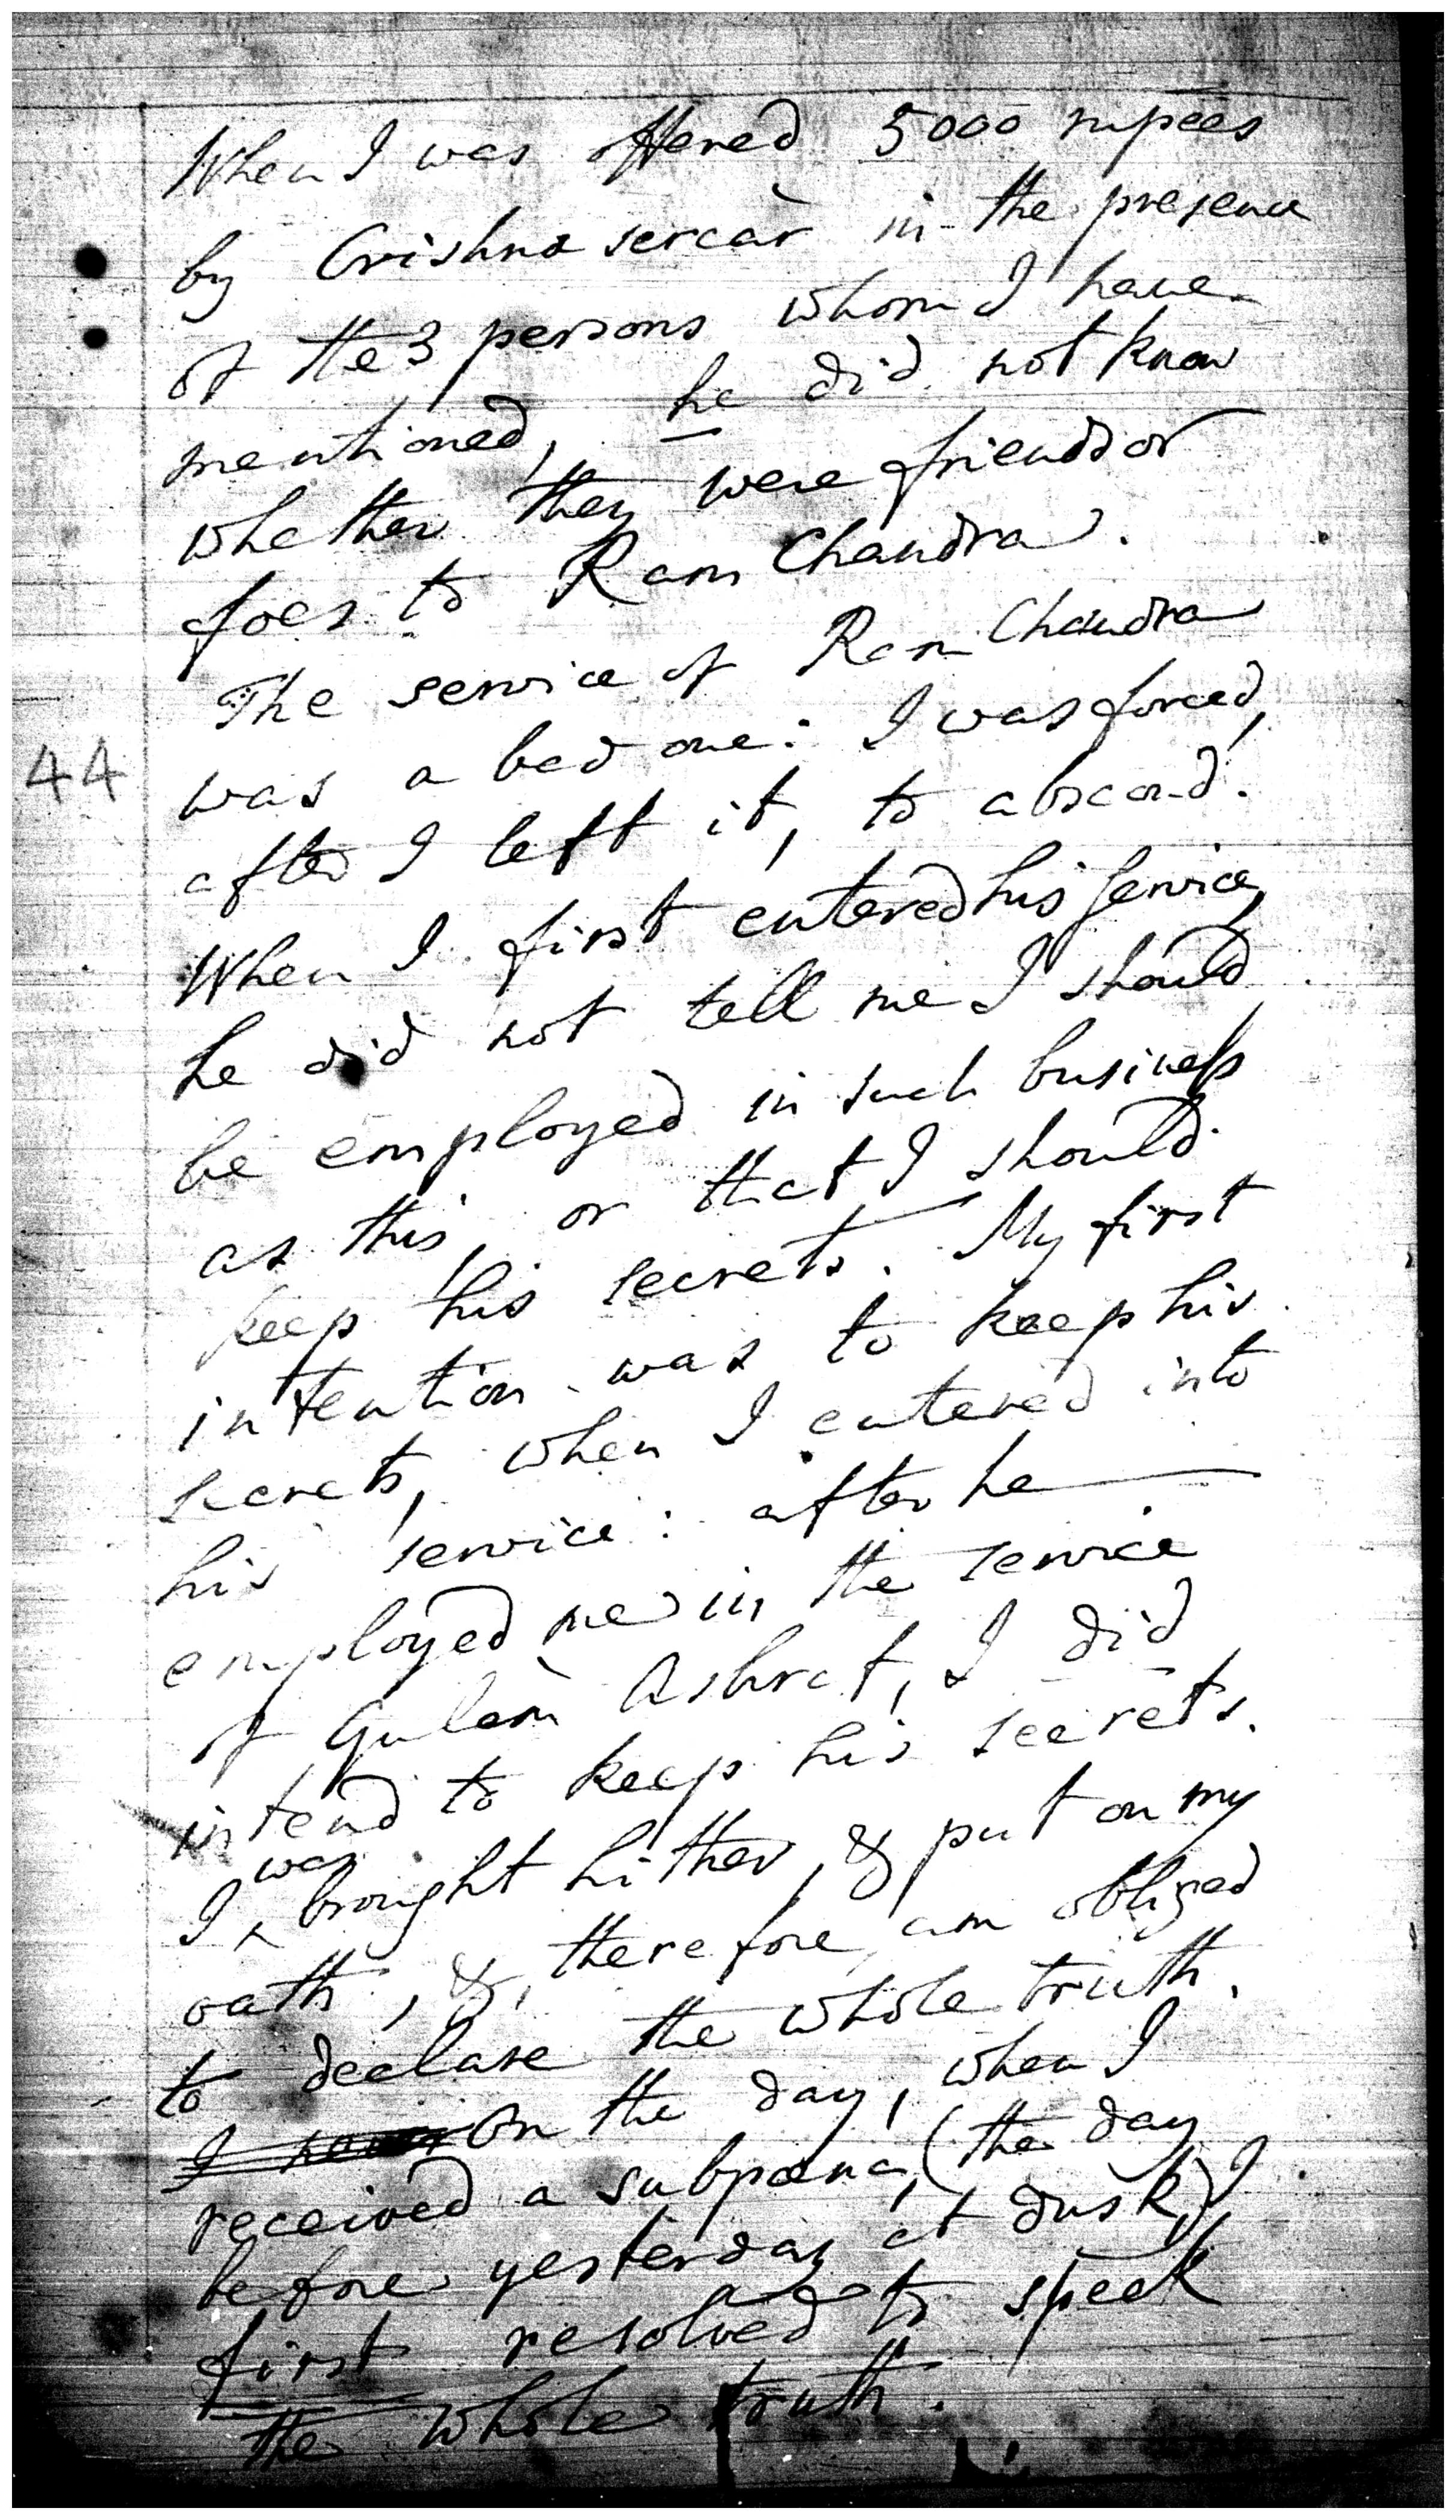 When I was offered 5000 rupees
by Crishna sercàr in the presence
of the 3 persons whom I have
mentioned, he did not know
whether they were friends or
foes to Ram Chandra.
The service of Ram Chandra
was a bad one: I was forced,
44
after I left it, to abscond.
When I first entered his service,
he did not tell me I should
be employed in such business
as this, or that I should
keep his secrets. My first
intention was to keep his
secrets, when I entered into
his service: after he
employed me in the service
of Gulàm Ashrat, I did
intend to keep his secrets.
I was brought hither, & put on my
oath, &, therefore, am obliged
to declare the whole truth.
I On the day, when I
received a subpœna, (the day
before yesterday at dusk) I
first resolved to speak
the whole truth.